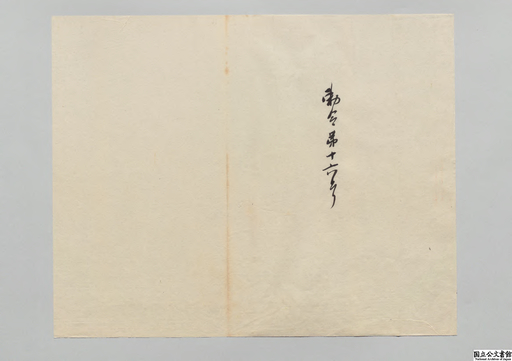 勅令第十六号
国立公文書館
National Archives of Japan